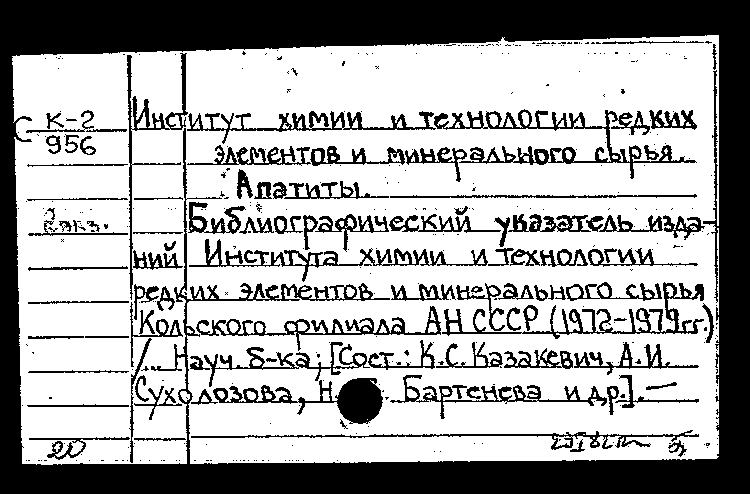 С К-2 Институт химии и технологии редких
956 элементов и минерального сырья.
Апатиты.
2 экз. Библиографический указатель изда-
ний Института химии и технологии
редких элементов и минерального сырья
Кольского филиала АН СССР (1972-1979гг.)
/... Науч. б-ка; [Сост.: К.С. Казакевич, А.И.
Сухолозова, Н. Бартенева и др.]. —
20